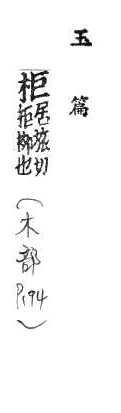 玉篇
柜居旅切
柜柳也
(木部
P.194)